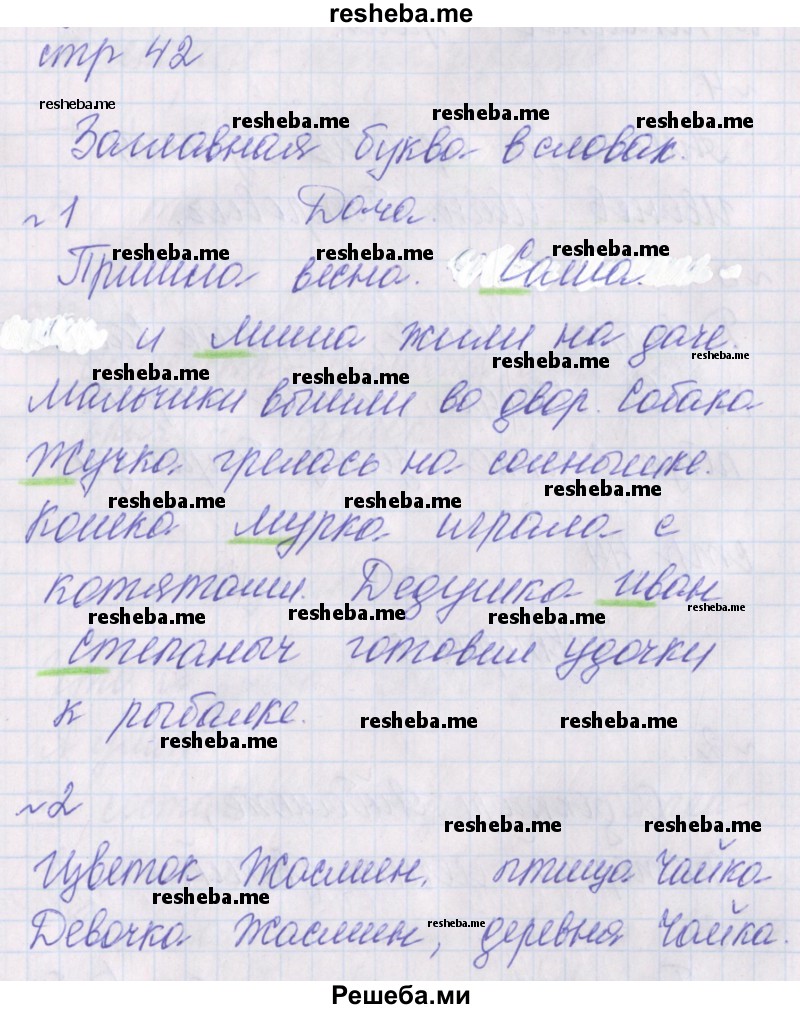 resheba.me
стр 42
resheba.me resheba.me resheba.me resheba.me
Заглавная буква в словах.
№1 Дача.
resheba.me resheba.me resheba.me
Пришла весна. Саша.
и Миша жили на даче.
resheba.me resheba.me resheba.me resheba.me
Мальчики вышли во двор. Собака
Жучка грелась на солнышке.
resheba.me resheba.me resheba.me
Кошка Мурка играла с
котятами. Дедушка Иван
resheba.me resheba.me resheba.me resheba.me
Степаныч готовил удочки
к рыбалке.
resheba.me resheba.me resheba.me
№2
resheba.me resheba.me
Цветок Жасмин, птица Чайка
resheba.me resheba.me
Девочка Жасмин, деревня Чайка.
Решеба.ми